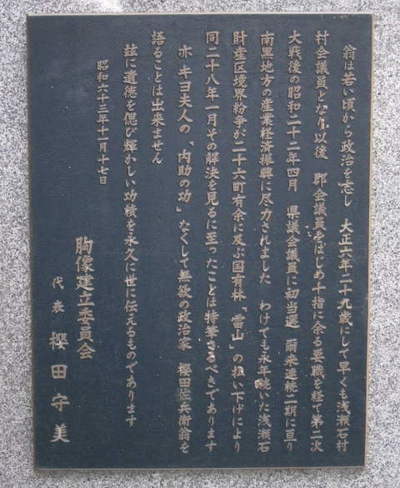 翁は若い頃から政治を志し 大正六年二十九歳にして早くも浅瀬石村
村会議員となり以後 郡会議員をはじめ十指に余る要職を経て第二次
大戦後の昭和二十二年四月 県議会議員に初当選 爾来連続二期に亘り
南黒地方の産業経済振興に尽力されました わけても永年続いた浅瀬石
財産区境界紛争が二十六町有余に及ぶ国有林「雷山」の払い下げにより
同二十八年一月その解決を見るに至ったことは特筆さるべきであります
亦キヨ夫人の「内助の功」なくして無級の政治家 櫻田佐兵衛翁を
語ることは出来ません
玆に遺徳を偲び輝かしい功績を永久に世に伝えるものであります
昭和六十三年十一月十七日
胸像建立委員会
代表 櫻田守美